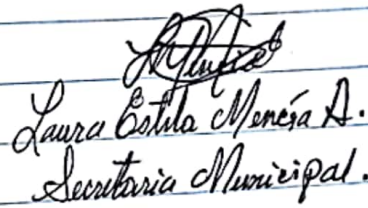 Laura Estila Mencía A.
Secretaria Municipal.